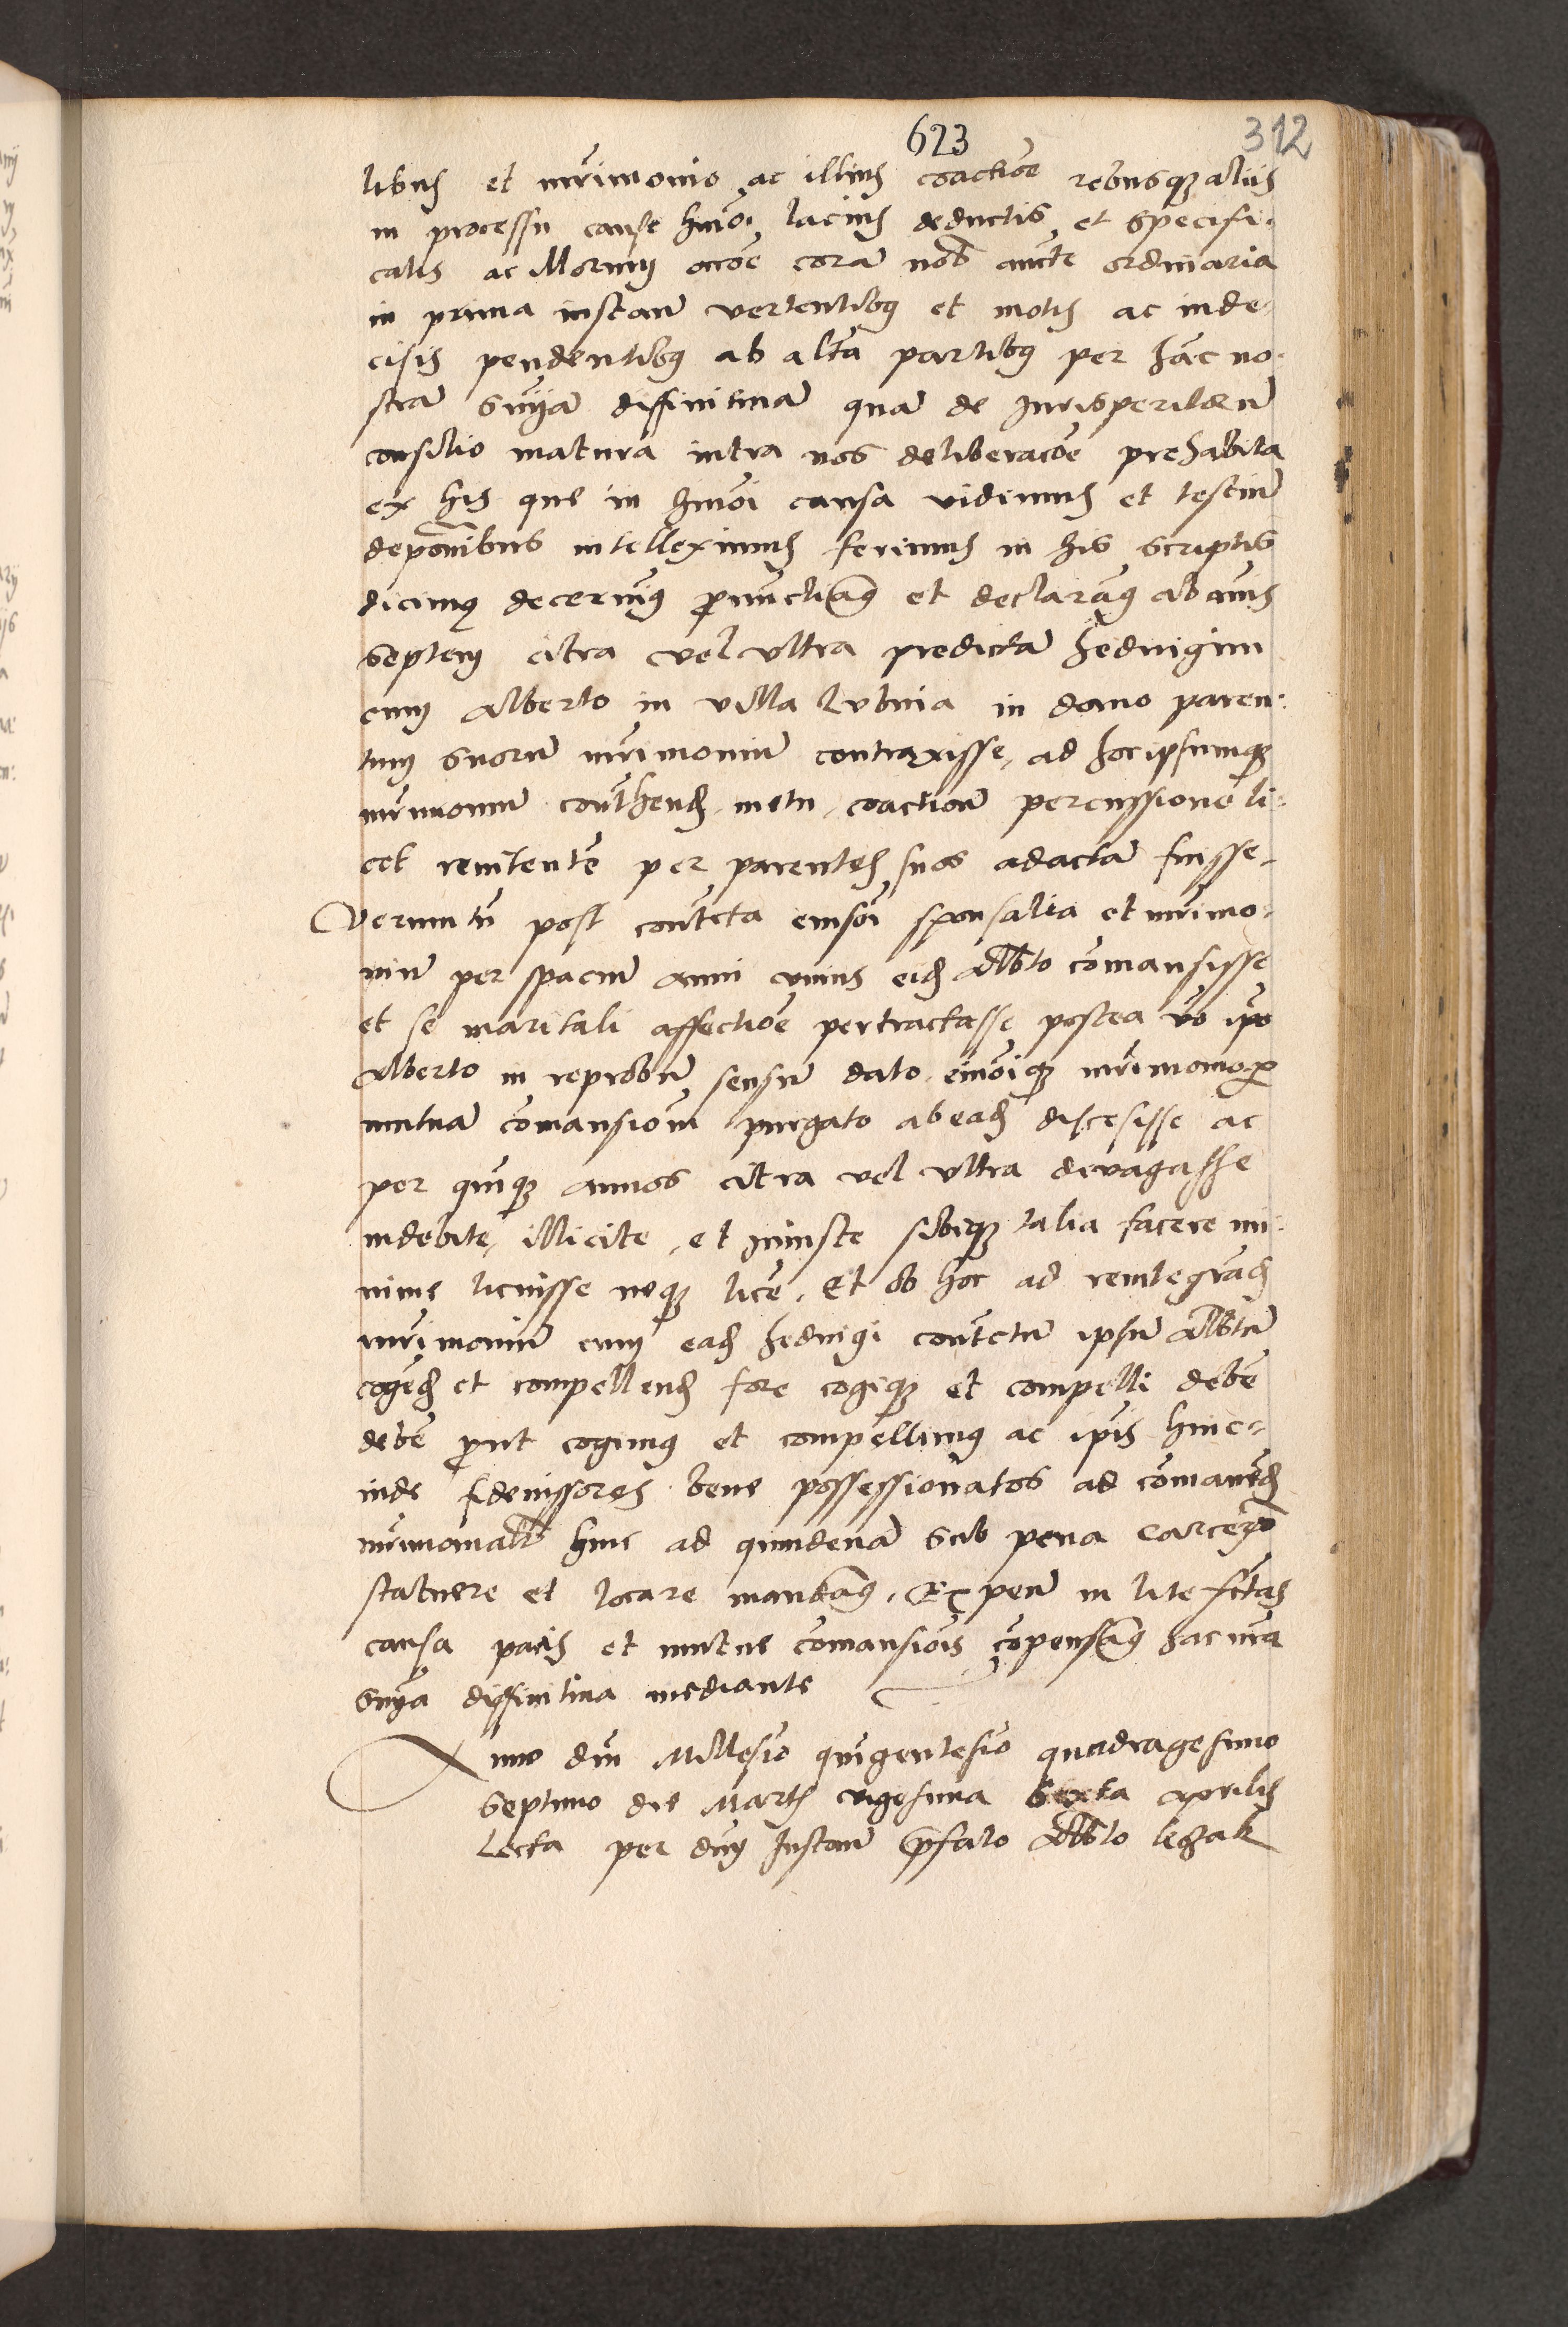 623 312
libus et mrimonio ac illius coactioe rebusq aliis
in processu cause hmoi lacius deductis et specifi-
catis ac illorum occoe coram nob aucte ordinaria
in prima instan vertentibus et motis ac inde-
cisis pendentibus ab altra partibus per hac no-
stra snija diffinitiua qua de Jurisperitoru
consilio matura intra nos deliberacoe prehabita
ex his que in hmoi causa vidimus et testium
deponibus intelleximus ferimus in his scriptis
dicimus decernimus pnunctiamus et declaramus ab annis
septem citra vel vltra predicta Heduigim
cum Alberto in villa Lubnia in domo paren-
tum suoru mrimoniu contraxisse, ad hoc ipsumq
mrimoniu conthend metu, coactione percussione li-
cet renitente per parentes suos adacta fuisse.
Verumtn post contcta eiusoi sponsalia et mrimo-
niu per spaciu anni vnius eid Albto comansisse
et se maritali affectioe pertractasse postea vo ipo
Alberto in reprobu sensu dato, eiuoiq mrimonio p
mutua comansione purgato ab ead discesisse ac
per quiq annos citra vel vltra deuagasse
indebite, illicite, et iniuste sibiq talia facere mi-
nime licuisse neq lice, Et ob hoc ad reintegrad
mrimoniu cum ead heduigi contctu ipsu Albtu
cogend et compellend fore cogiq et compelli debe
debe put cogimus et compellimus ac ipis hinc-
inde fideiussores bene possessionatos ad comanend
mrimonialr hinc ad quindena sub pena carceru
statuere et locare mandamus, Expen in lite fctas
causa pacis et mutue comansiois copensamus hac nra
snija diffinitiua mediante
Anno dni Millesio quigentesio quadragesimo
septimo die Martis vigesima sexta Aprilis
Lecta per dnm Instan pfato Albto